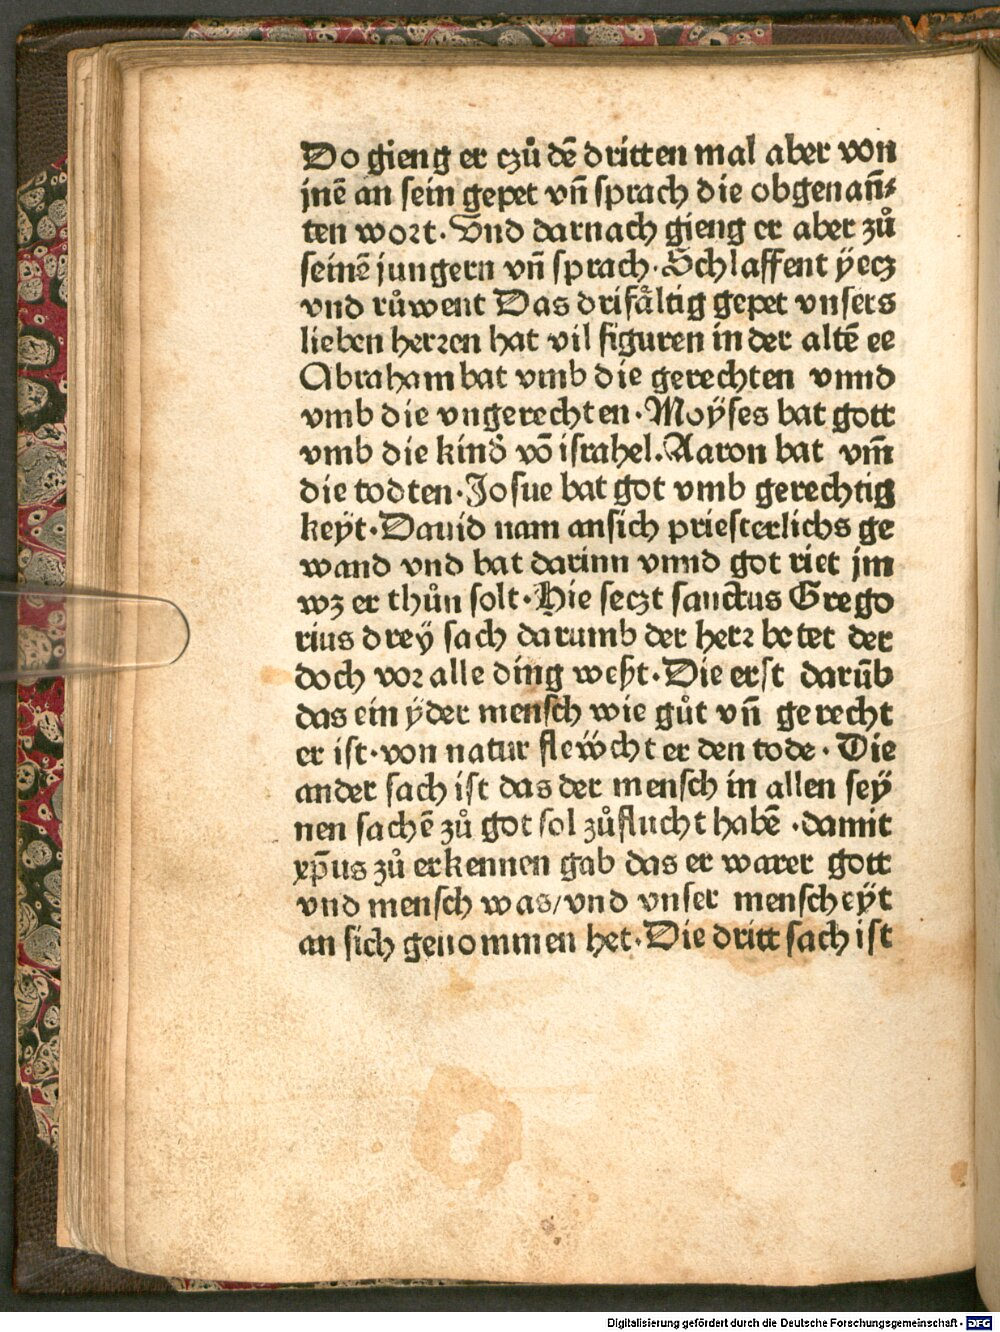 Do gieng er czů dē dritten mal aber von
jnē an sein gepet vn̄ sprach die obgenan̄⸗
ten wort. Vnd darnach gieng er aber zů
seinē jungern vn̄ sprach. Schlaffent ÿecz
vnd růwent Das drifåltig gepet vnsers
lieben herren hat vil figuren in der altē ee
Abraham bat vmb die gerechten vnnd
vmb die vngerechten. Moÿses bat gott
vmb die kind̕ vō israhel. Aaron bat vm̄
die todten. Josue bat got vmb gerechtig
keÿt. Dauid nam ansich priesterlichs ge
wand vnd bat darinn vnnd got riet jm
wz er thůn solt. Hie seczt sanctus Grego
rius dreÿ sach darumb der herr betet der
doch vor alle ding weßt. Die erst darūb
das ein ÿder mensch wie gůt vn̄ gerecht
er ist. von natur flewcht er den tode. Die
ander sach ist das der mensch in allen seÿ
nen sachē zů got sol zůflucht habē .damit
xp̄us zů erkennen gab das er warer gott
vnd mensch was/vnd vnser menscheÿt
an sich genommen het. Die dritt sach ist
Digitalisierung gefördert durch die Deutsche Forschungsgemeinschaft - DFG